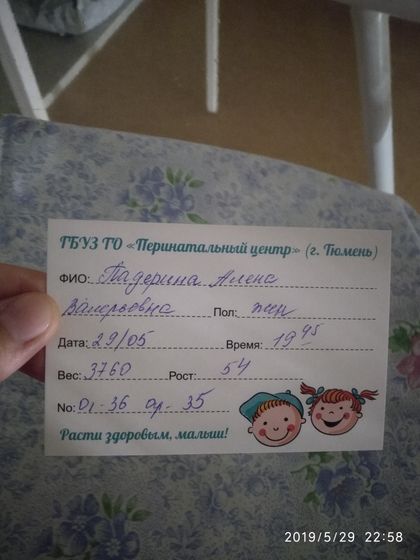 ГБУЗ ТО «Перинатальный центр» (г. Тюмень)
ФИО: Падерина Алена
Валерьевна Пол: жен
Дата: 29/05 Время: 19 45
Вес: 3760 Рост: 54
No: Ог-36 Ор-35
Расти здоровым, малыш!
2019/5/29 22:58